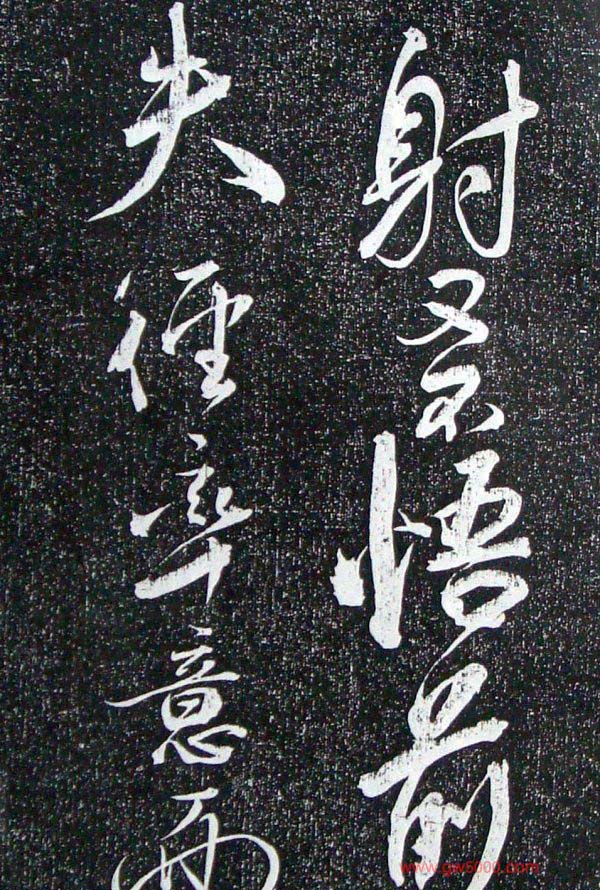 射又不悟前
失徑率意而
www.gw5000.com